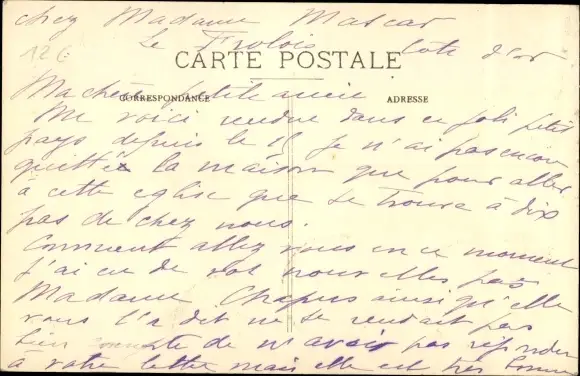 chez Madame Mascar
12 G
Le Frolois Cote d'or
CARTE POSTALE
CORRESPONDANCE ADRESSE
Ma chère petite amie
Me voici rendue dans ce joli petit
pays depuis le 15 je n'ai pas encore
quitté la maison que pour aller
a cette eglise que se trouve à dix
pas de chez nous.
Comment allez vous en ce moment
j'ai eu de vos nouvelles par
Madame Chapuis ainsi qu'elle
vous l'a dit ne se rendait pas
bien compte de n'avoir pas répondu
à votre lettre mais elle est très bonne